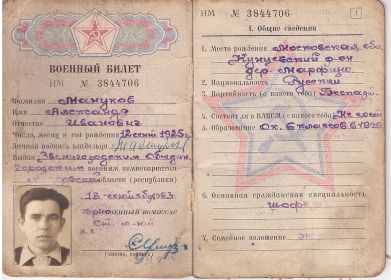 ВОЕННЫЙ БИЛЕТ
НМ № 3844706
Фамилия Мануков
Имя Александр
Отчество Иванович
Число, месяц и год рождения 12 сент 1925 г
Личная подпись владельца
Выдан Звенигородским Объедин.
городским военным комиссариатом
Московской области (республики)
Военный комиссар
М. П.
НМ № 3844706
1
I. Общие сведения
1. Место рождения Московская обл
Кунцевский р-он
дер. Марфино
2. Национальность Русский
3. Партийность (с какого года) Беспарт.
4. Состоит ли в ВЛКСМ (с какого года) Не состо
5. Образование Ок. 6 классов в
6. Основная гражданская специальность
шофер
7. Семейное положение